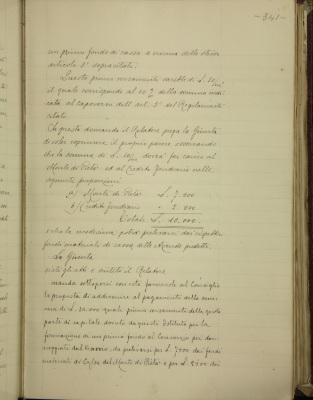 - 341 -
un primo fondo di cassa a norma dello stesso
articolo 3° sopracitato.
Questo primo versamento sarebbe di L. 10/m
il quale corrisponde al 10 % della somma indi-
cata al capoverso dell'art. 3° del Regolamento
citato.
Ciò posto domanda il Relatore prega la Giunta
di voler esprimere il proprio parere osservando
che la somma di L. 10/m dovrà far carico al
Monte di Pietà ed al Credito Fondiario nelle
seguenti proporzioni
a) Monte di Pietà L. 7.000
b) Credito fondiario " 3.000
Totale L. 10.000.
e che la medesima potrà prelevarsi dai rispettivi
fondi materiali di cassa delle Aziende predette.
La Giunta
visti gli atti e sentito il Relatore
manda sottoporsi con voto favorevole al Consiglio
la proposta di addivenire al pagamento della som-
ma di L. 10,000 quale primo versamento della quota
parte di capitale dovuto da questo Istituto per la
formazione di un primo fondo al Consorzio pei dan-
neggiati dal terremoto, da prelevarsi per L. 7000 dai fondi
materiali di Cassa del Monte di Pietà e per L. 3000 dai